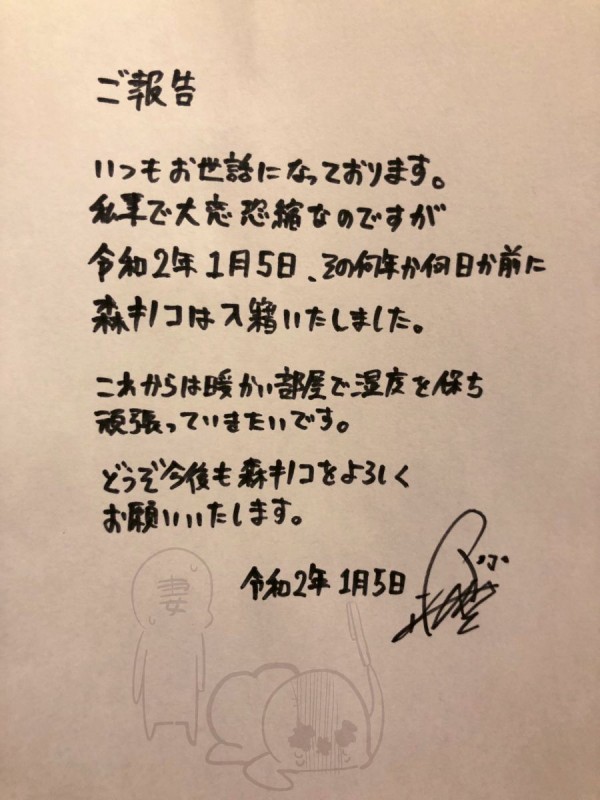 ご報告
いつもお世話になっております。
私事で大変恐縮なのですが
令和2年1月5日、その何年か何日か前に
森キノコは入籍いたしました。
これからは暖かい部屋で湿度を保ち
頑張っていきたいです。
どうぞ今後も森キノコをよろしく
お願いいたします。
令和2年1月5日
妻